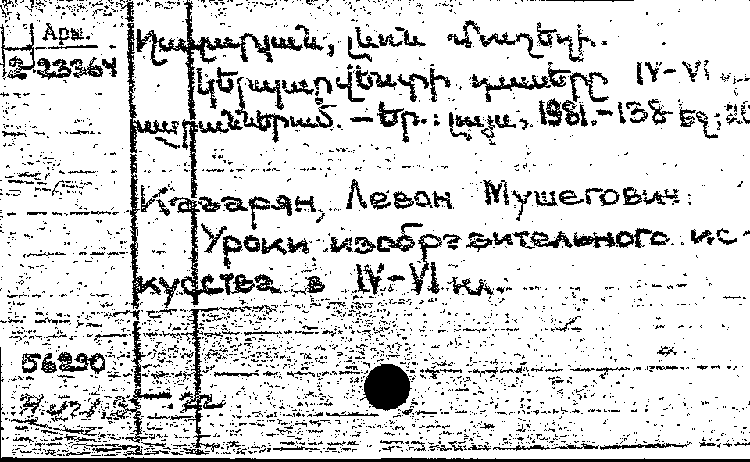 Арм.
2-23364
Ղազարյան, Լևոն Մուշեղի.
Կերպարվեստի դասերը IV-VI
սարաններում. — Եր.: Լույս, 1981.-138 էջ; 20
Казарян, Левон Мушегович.
Уроки изобразительного ис-
кусства в IV-VI кл.
56290